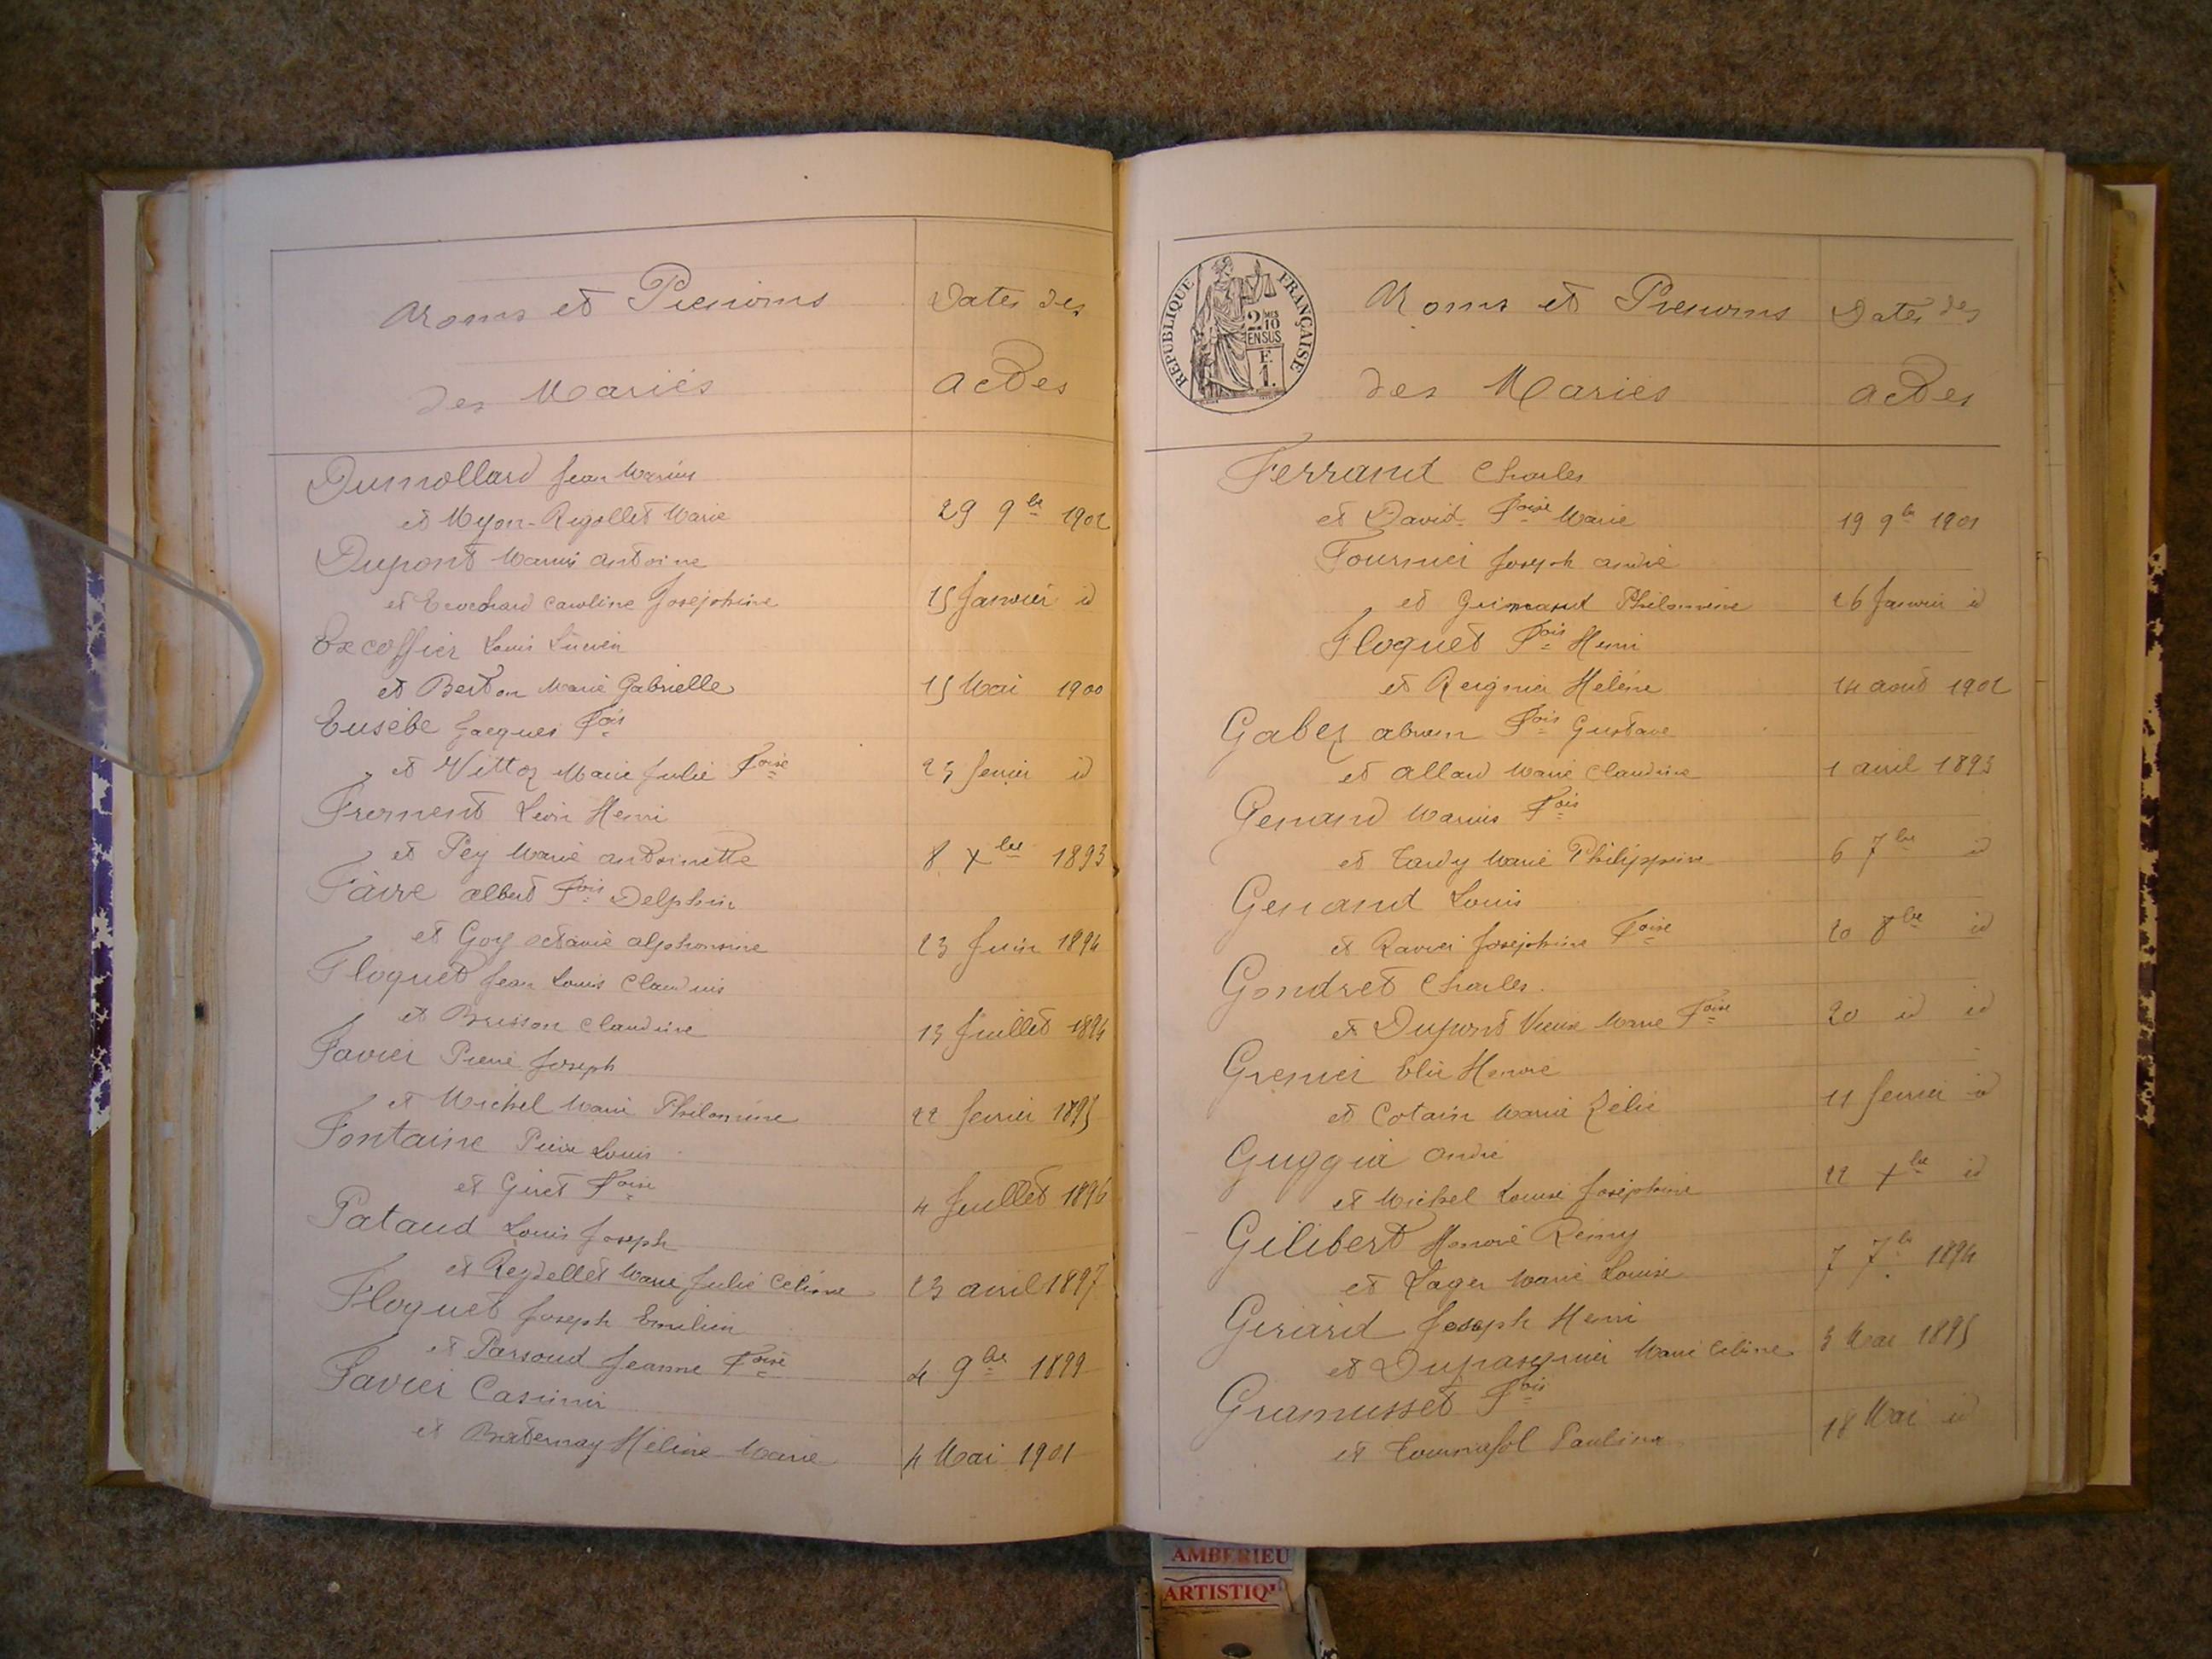 Noms et Prenoms
Dates des
des Mariés
actes
Dumollard Jean Marius
et Myon-Rigollet Marie
29 9bre 1902
Dupont Marius antoine
et caroline Josephine
15 Janvier id
Excoffier Louis Lucien
et Berton Marie Gabrielle
15 Mai 1900
Eusèbe Jacques Fois
et Vittoz Marie Julie Foise
23 fevrier id
Frement Léon Henri
et Pey Marie antoinette
8 Xbre 1893
Faivre albert Fois Delphin
et Goy octavie alphonsine
23 Juin 1894
Floquet Jean Louis Claudius
et Brisson Claudine
13 Juillet 1894
Favier Pierre Joseph
et Michel Marie Philomène
22 fevrier 1895
Fontaine Pierre Louis
et Giret Foise
4 Juillet 1896
Pataud Louis Joseph
et Reydellet Marie Julie Celine
23 avril 1897
Floquet Joseph Emilien
et Parsoud Jeanne Foise
4 9bre 1899
Favier Casimir
et Hélène Marie
4 Mai 1901
RÉPUBLIQUE FRANÇAISE
2/10
EN SUS
F.
1.
Noms et Prenoms
Dates des
des Mariés
actes
Ferrand Charles
et David Foise Marie
19 9bre 1901
Fournier Joseph andré
et Philomène
26 Janvier id
Floquet Fois Henri
et Reignier Hélène
14 août 1902
Gabez Fois Gustave
et allard Marie Claudine
1 avril 1893
Genand Marius Fois
et Tardy Marie Philippine
6 7bre id
Genand Louis
et Ravier Josephine Foise
20 8bre id
Gondret Charles
et Dupont Vieux Marie Foise
20 id id
Grenier Elie Honoré
et Cotain Marie Zélie
11 fevrier id
Guggia André
et Michel Louise Joséphine
22 Xbre id
Gilibert Honoré Remy
et Lager Marie Louise
7 7bre 1894
Girard Joseph Henri
et Dupasquier Marie Celine
3 Mai 1895
Gramusset Fois
et Tournafol Pauline
18 Mai id
AMBERIEU
ARTISTIQ